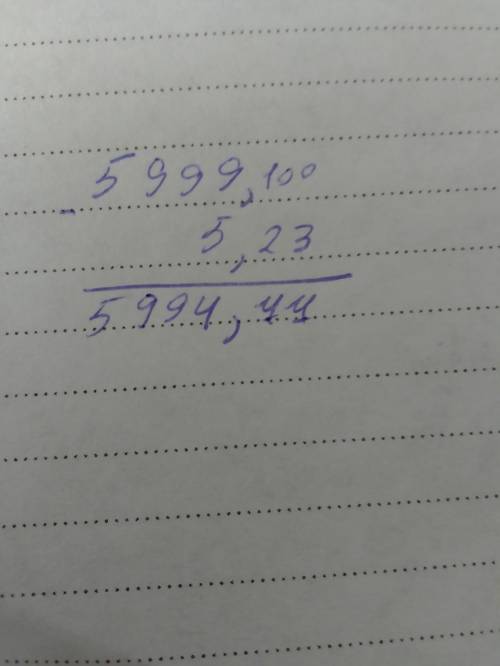 5999,100
-
5,23
5994,77